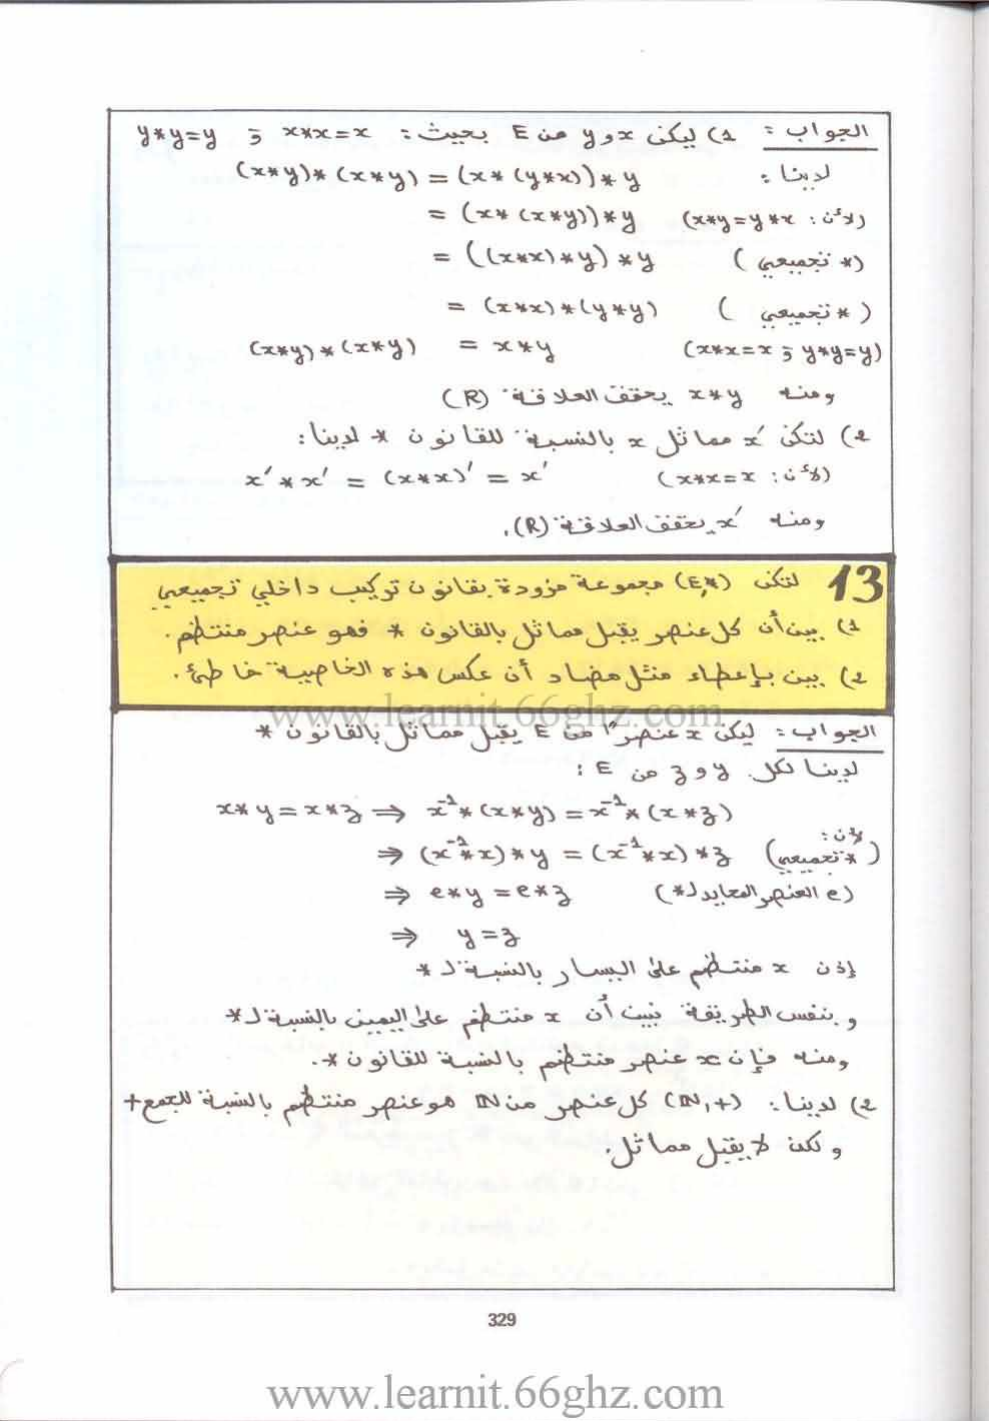 الجواب : 1) ليكن x و y من E بحيث : x*x=x و y*y=y
لدينا : (x*y)*(x*y) = (x*(y*x))*y
= (x*(x*y))*y (لأن : x*y=y*x)
= ((x*x)*y)*y (* تجميعي)
= (x*x)*(y*y) (* تجميعي)
(x*y)*(x*y) = x*y (x*x=x و y*y=y)
ومنه x*y يحقق العلاقة (R)
2) لتكن x' مماثل x بالنسبة للقانون * لدينا :
x'*x' = (x*x)' = x' (لأن : x*x=x)
ومنه x' يحقق العلاقة (R).
13 لتكن (E,*) مجموعة مزودة بقانون تركيب داخلي تجميعي
1) بين أن كل عنصر يقبل مماثل بالقانون * فهو عنصر منتظم.
2) بين بإعطاء مثل مضاد أن عكس هذه الخاصية خاطئ.
www.learnit.66ghz.com
الجواب : ليكن x عنصراً من E يقبل مماثل بالقانون *
لدينا لكل y و z من E :
x*y = x*z ⇒ x⁻¹*(x*y) = x⁻¹*(x*z)
⇒ (x⁻¹*x)*y = (x⁻¹*x)*z (لأن : * تجميعي)
⇒ e*y = e*z (e العنصر المحايد ل*)
⇒ y=z
إذن x منتظم على اليسار بالنسبة ل *
و بنفس الطريقة نبين أن x منتظم على اليمين بالنسبة ل*
ومنه فإن x عنصر منتظم بالنسبة للقانون *.
2) لدينا : (ℕ,+) كل عنصر من ℕ هو عنصر منتظم بالنسبة للجمع +
و لكن لا يقبل مماثل.
329
www.learnit.66ghz.com